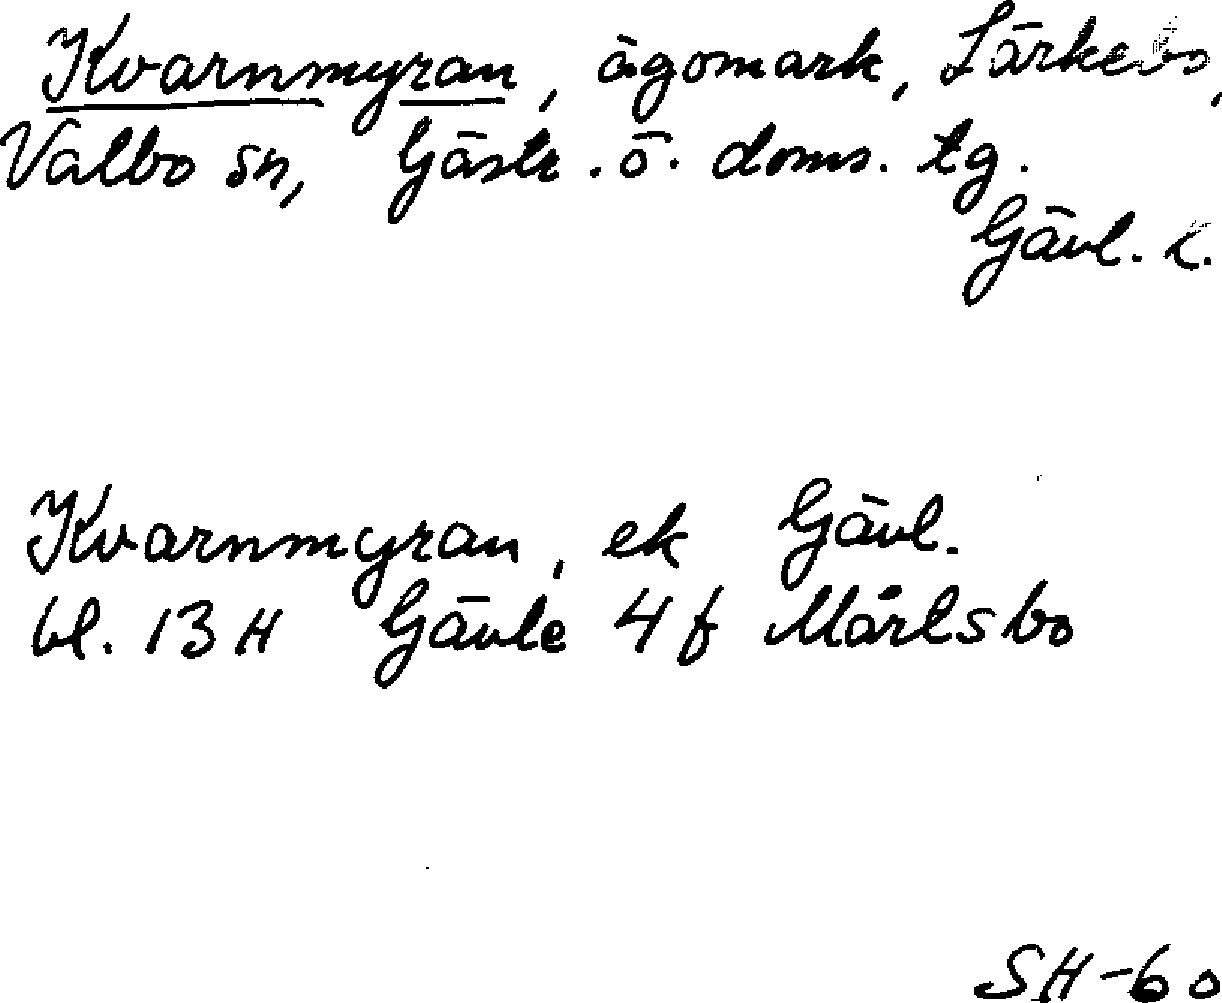 Kvarnmyran, ägomark, Lärkebo,
Valbo sn, Gästr. ö. doms. tg.
Gävl. l.
Kvarnmyran, ek Gävl.
bl. 13 H Gävle 4 f Mårtsbo
SH-60